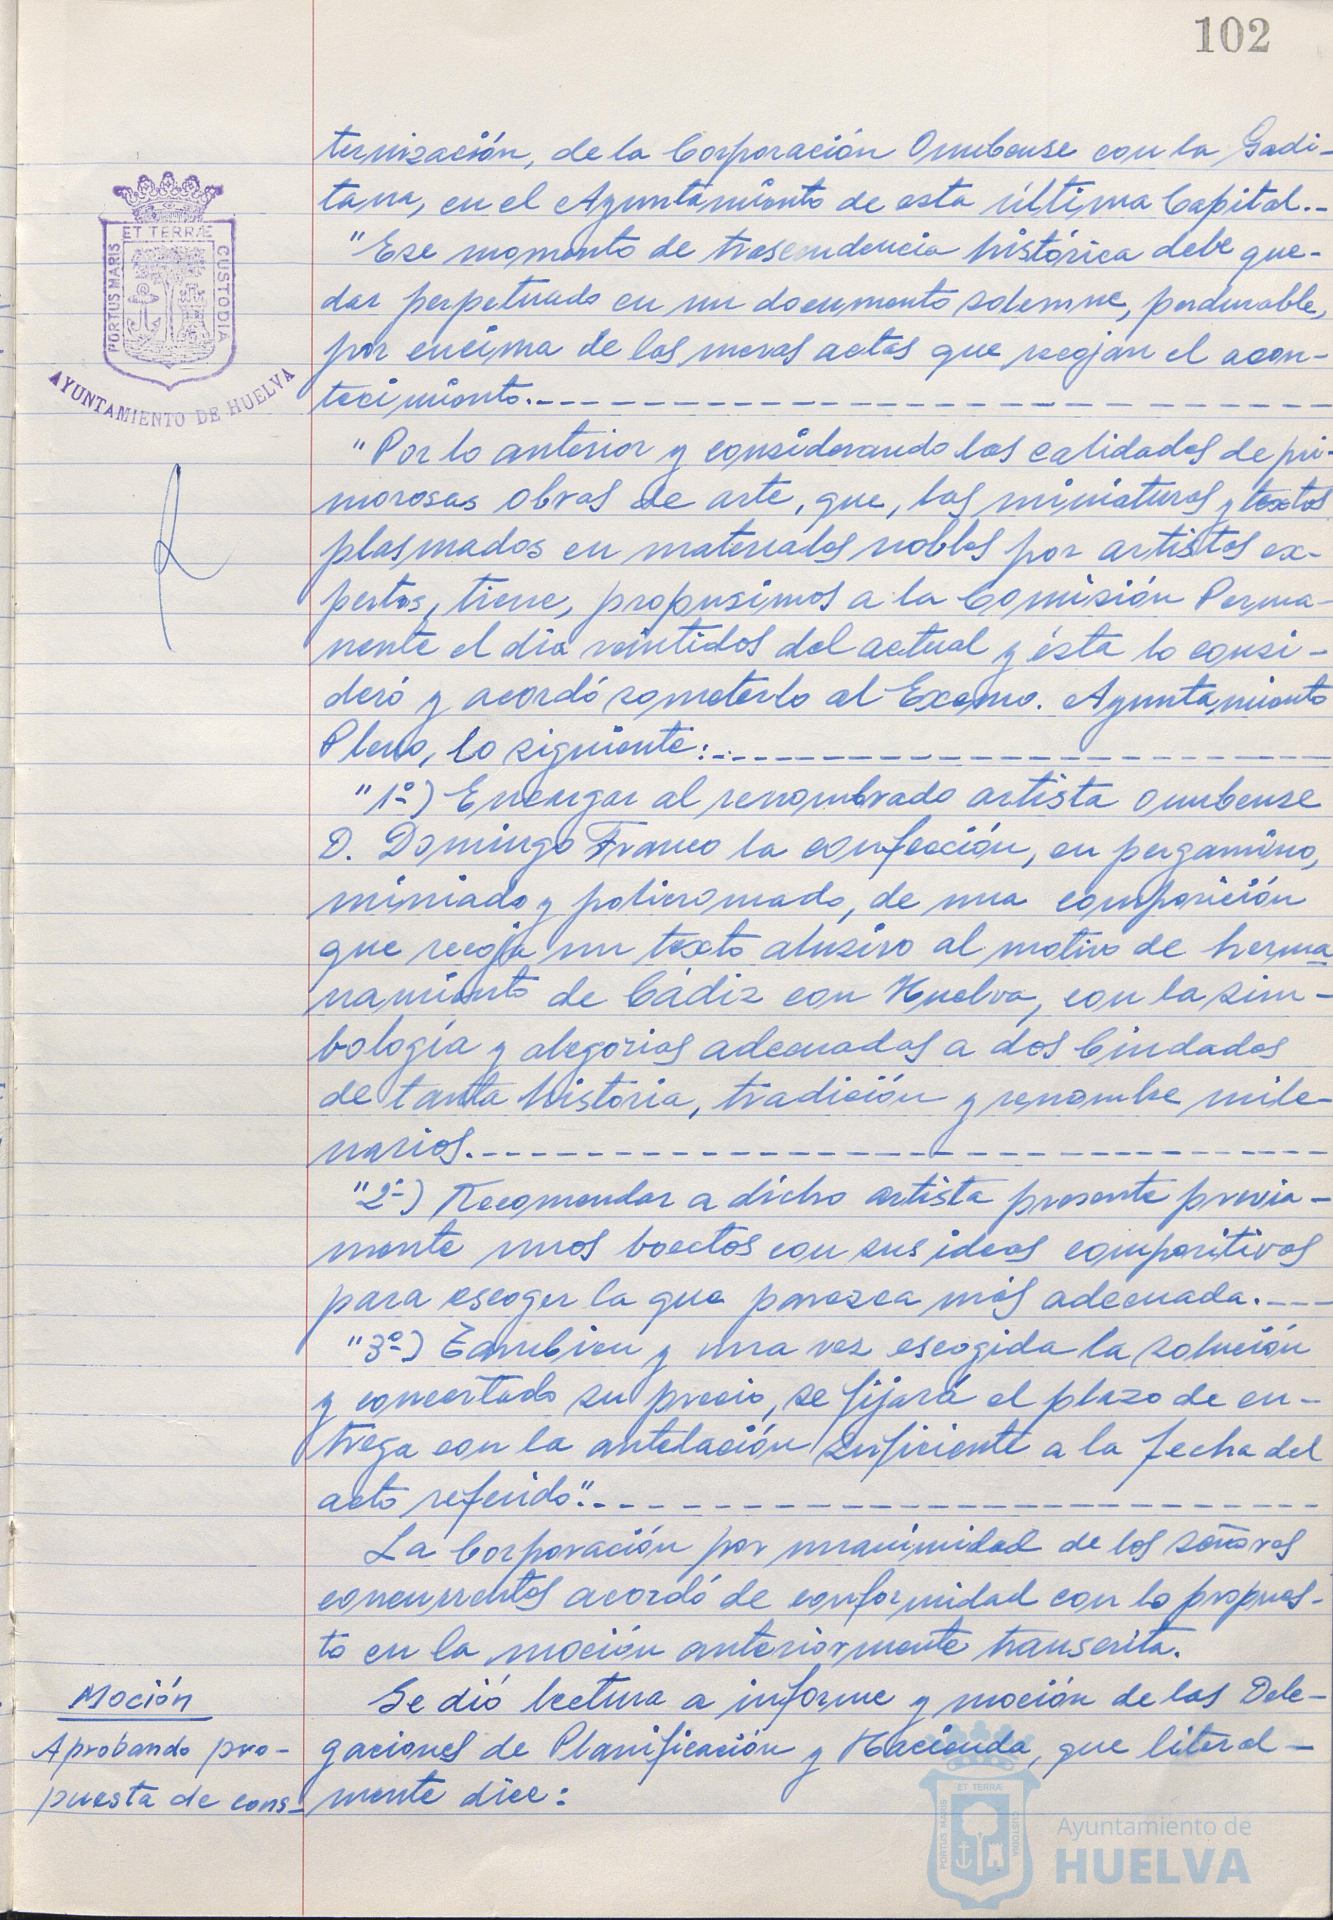 102
ternización, de la Corporación Onubense con la Gadi-
tana, en el Ayuntamiento de esta última Capital.-
"Ese momento de trascendencia histórica debe que-
dar perpetuado en un documento solemne, perdurable,
por encima de las meras actas que recojan el acon-
tecimiento.-
"Por lo anterior y considerando las calidades de pri-
morosas obras de arte, que, las miniaturas y textos
plasmados en materiales nobles por artistas ex-
pertos, tiene, propusimos a la Comisión Perma-
nente el dia veintidos del actual y ésta lo consi-
deró y acordó someterlo al Excmo. Ayuntamiento
Pleno, lo siguiente:
"1º) Encargar al renombrado artista onubense
D. Domingo Franco la confección, en pergamino,
miniado y policromado, de una composición
que recoja un texto alusivo al motivo de herma
namiento de Cádiz con Huelva, con la sim-
bología y alegorias adecuadas a dos Ciudades
de tanta historia, tradición y renombre mile-
narios.
"2º) Recomendar a dicho artista presente previa-
mente unos bocetos con sus ideas compositivas
para escoger la que parezca más adecuada.-
"3º) Tambien y una vez escogida la solución
y concertado su precio, se fijará el plazo de en-
trega con la antelación suficiente a la fecha del
acto referido".-
La Corporación por unanimidad de los señores
concurrentes acordó de conformidad con lo propues-
to en la moción anteriormente transcrita.
Moción
Aprobando pro-
puesta de cons-
Se dió lectura a informe y moción de las Dele-
gaciones de Planificación y Hacienda, que literal-
mente dice:
PORTUS MARIS ET TERRÆ CUSTODIA
AYUNTAMIENTO DE HUELVA
PORTUS MARIS ET TERRÆ CUSTODIA
Ayuntamiento de
HUELVA